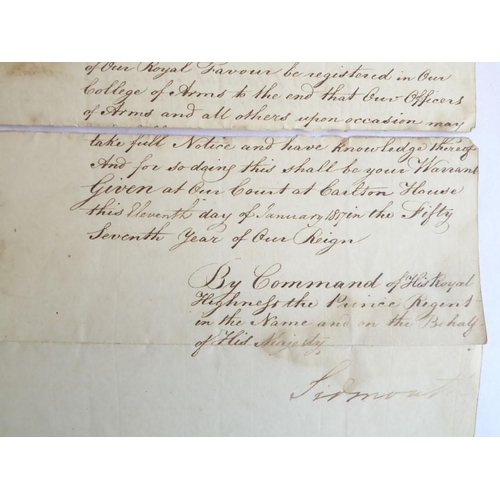 of Our Royal Favour be registered in Our
College of Arms to the end that Our Officers
of Arms and all others upon occasion may
take full Notice and have knowledge thereof
And for so doing this shall be your Warrant
Given at Our Court at Carlton House
this Eleventh day of January 1817 in the Fifty
Seventh Year of Our Reign
By Command of His Royal
Highness the Prince Regent
in the Name and on the Behalf
of His Majesty,
Sidmouth